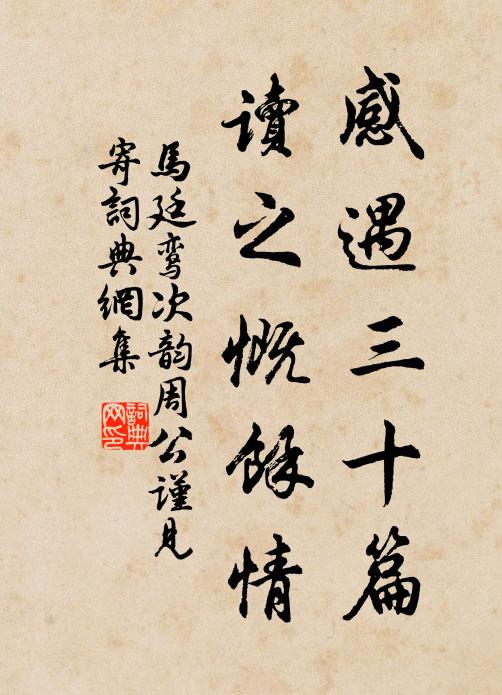 感遇三十篇
讀之慨餘情
馬廷鸞次韵周公謹見
寄詞典網集
詞典网印